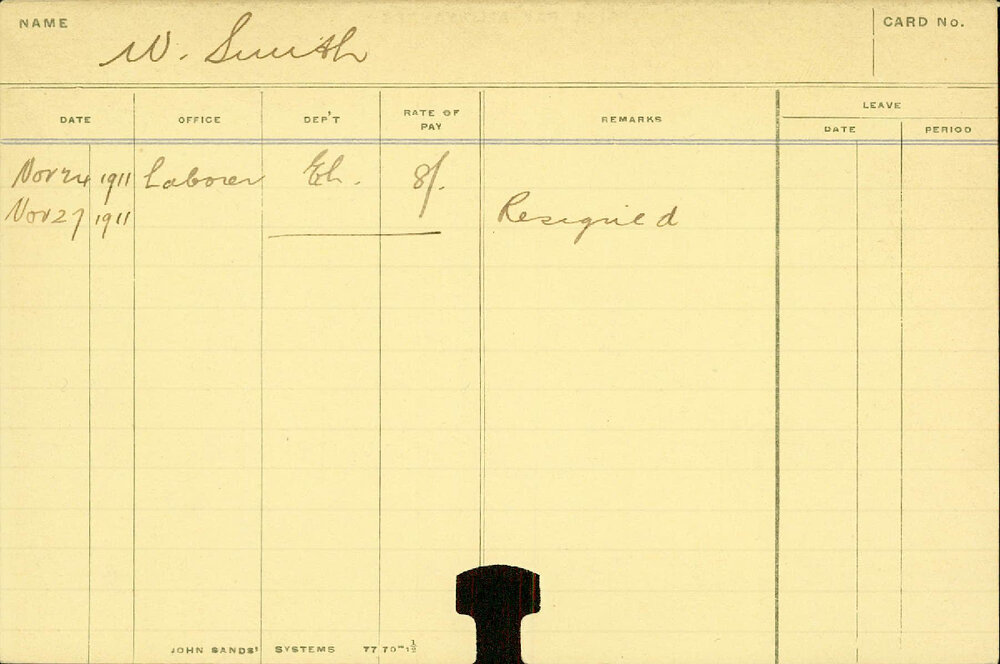 NAME W. Smith CARD No.
DATE OFFICE DEP'T RATE OF PAY REMARKS LEAVE
DATE PERIOD
Nov 24 1911 Laborer 8/.
Nov 27 1911 Resigned
JOHN SANDS' SYSTEMS 77 70